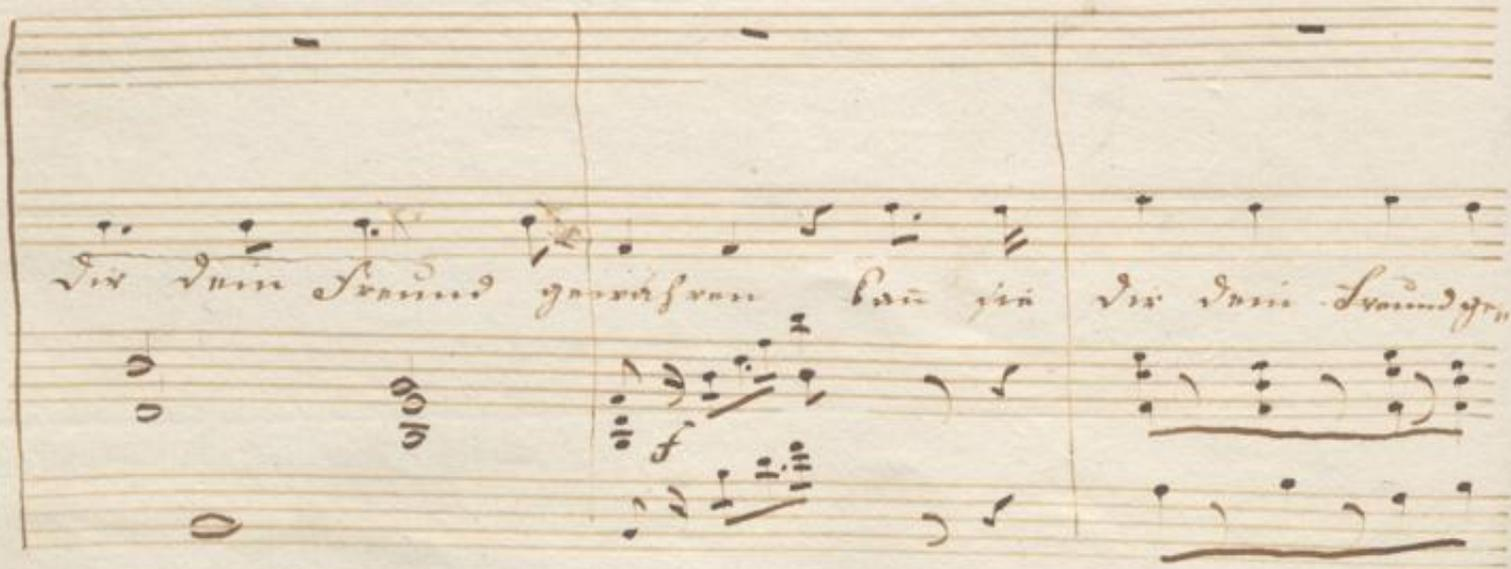 dir dein Freund gewähren kañ sie dir dein Freund ge
f